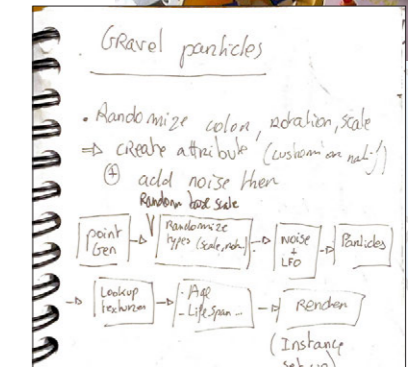 Gravel particles
• Randomize color, rotation, scale
⇒ create attribute (custom or nat
⊕ add noise then
Random base scale
point Gen → Randomize types (scale, → Noise + LFO → Particles
→ Lookup texturizer → - Age - Life Span - → Render
(Instance
set up)